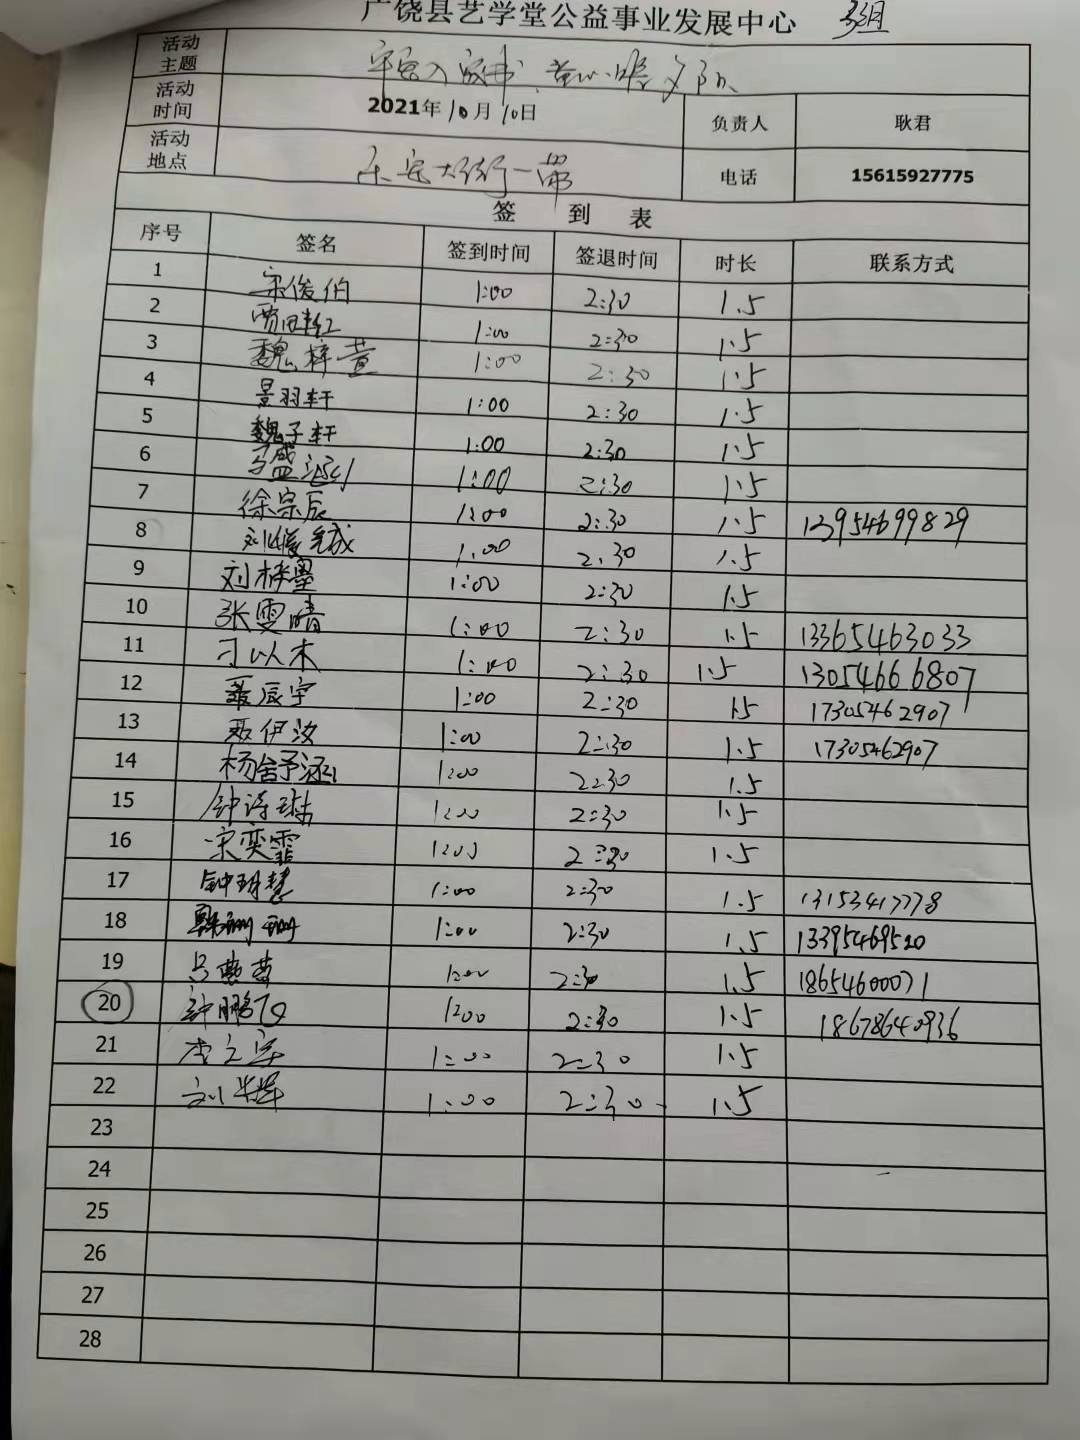 广饶县艺学堂公益事业发展中心 3组
活动主题
活动时间 2021年10月10日 负责人 耿君
活动地点 乐安大街一带 电话 15615927775
签 到 表
序号 签名 签到时间 签退时间 时长 联系方式
1 宋俊伯 1:00 2:30 1.5
2 1:00 2:30 1.5
3 魏梓萱 1:00 2:30 1.5
4 景羽轩 1:00 2:30 1.5
5 魏子轩 1:00 2:30 1.5
6 1:00 2:30 1.5
7 徐宗辰 1:00 2:30 1.5 13954699829
8 1:00 2:30 1.5
9 刘梓墨 1:00 2:30 1.5
10 张雯晴 1:00 2:30 1.5 13365463033
11 刁以木 1:00 2:30 1.5 13054666807
12 聂辰宇 1:00 2:30 1.5 17305462907
13 聂伊汝 1:00 2:30 1.5 17305462907
14 杨舒涵 1:00 2:30 1.5
15 钟诗琪 1:00 2:30 1.5
16 宋奕霏 1:00 2:30 1.5
17 钟玥慧 1:00 2:30 1.5 13153417778
18 1:00 2:30 1.5 13395469520
19 吕燕燕 1:00 2:30 1.5 18654600071
20 钟鹏飞 1:00 2:30 1.5 18678640936
21 1:00 2:30 1.5
22 1:00 2:30 1.5
23
24
25
26
27
28